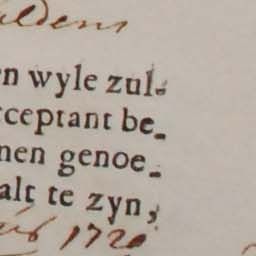 n wyle zul-
cceptant be-
nen genoe-
alt te zyn,
1720